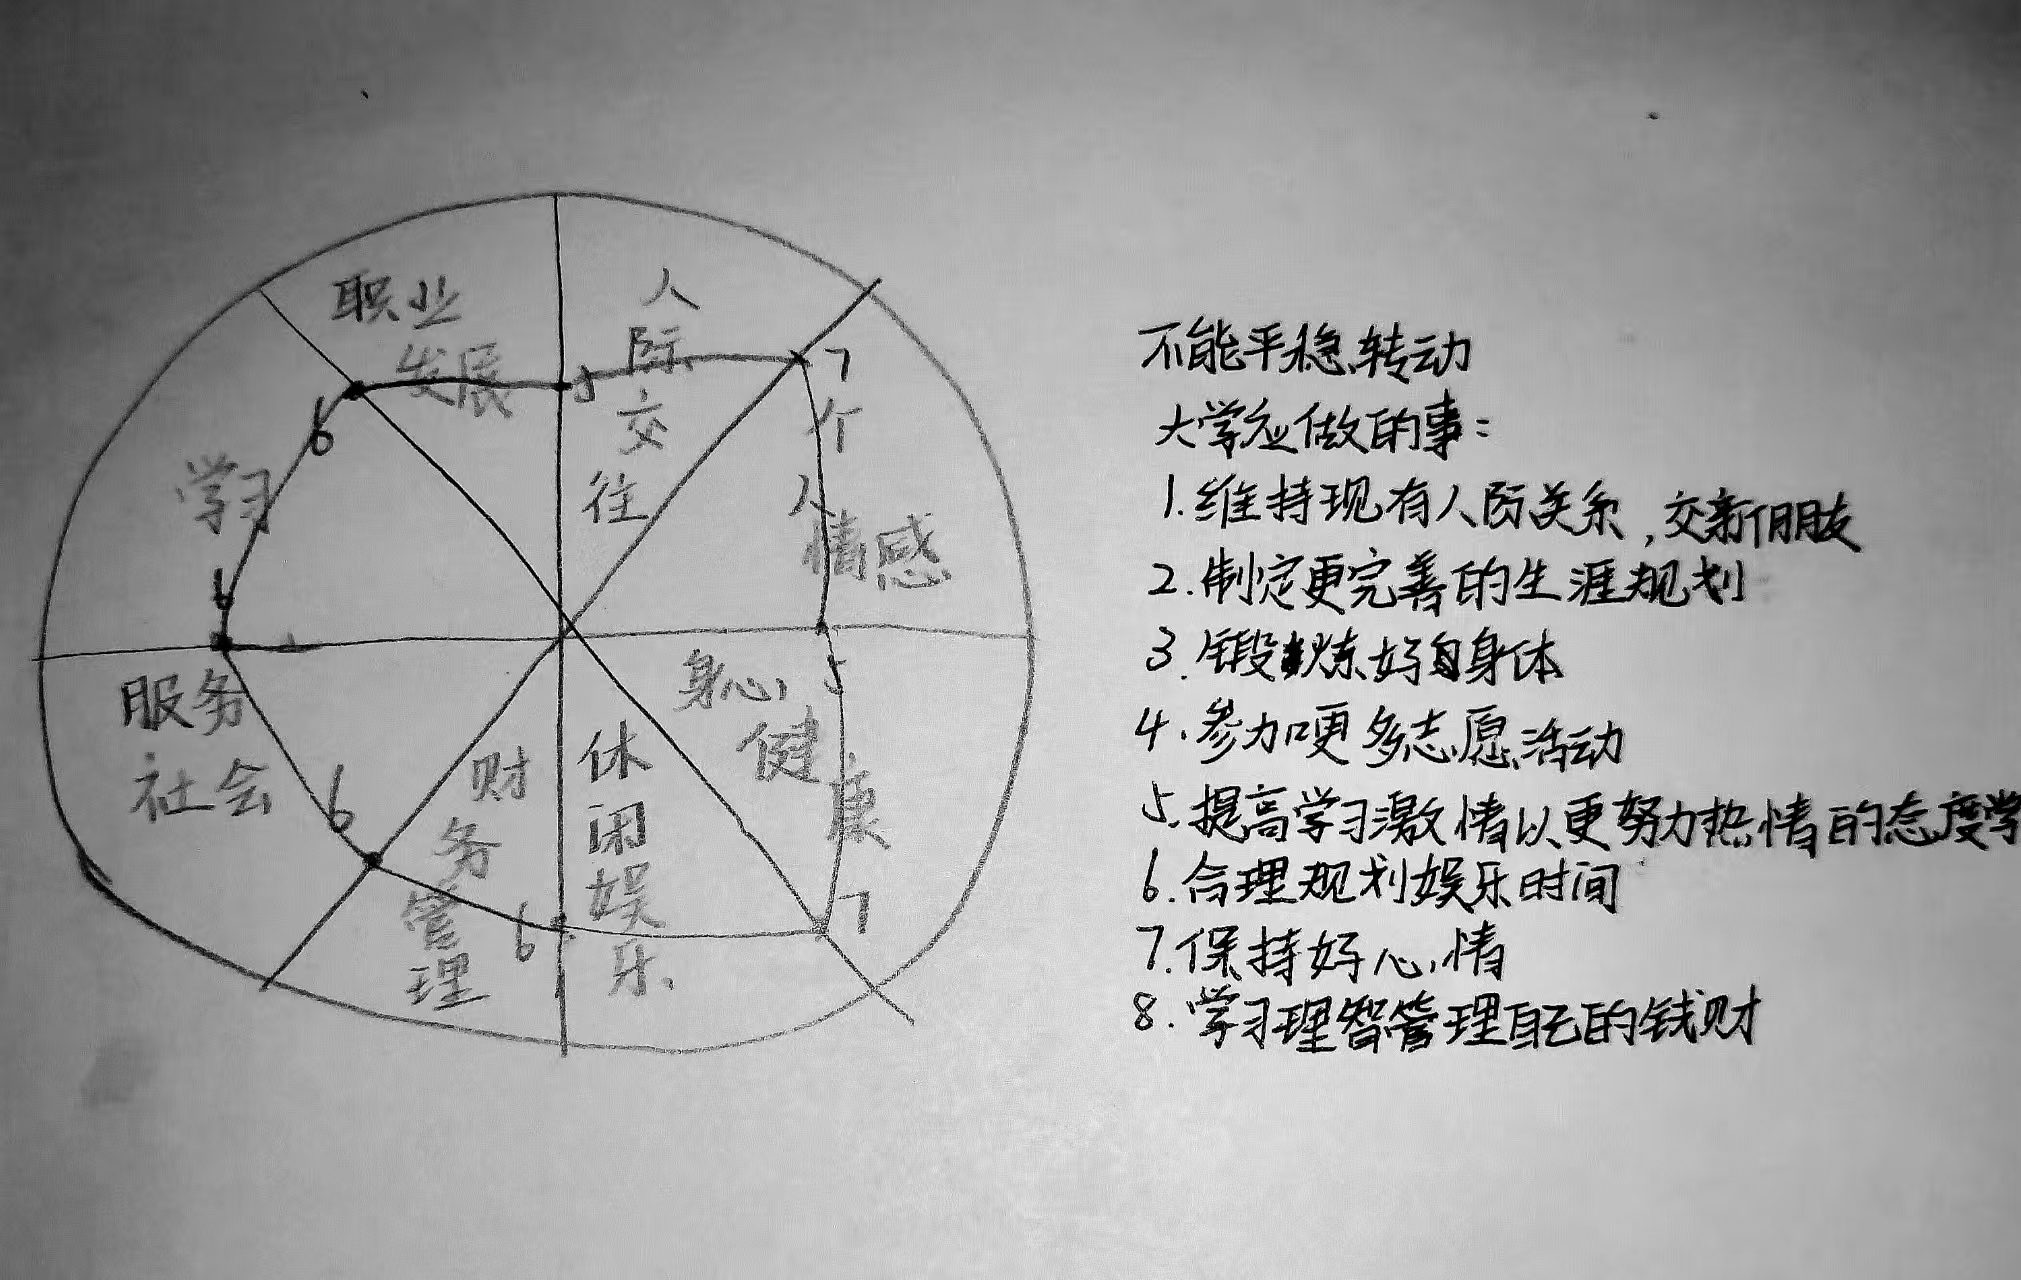 职业
发展
人
际
交
往
7
5
6
个
人
情感
学习
6
服务
社会
身心
健
康
5
6
财
务
管
理
休
闲
娱
乐
6
7
不能平稳转动
大学应做的事:
1.维持现有人际关系,交新朋友
2.制定更完善的生涯规划
3.锻炼好自身体
4.参加更多志愿活动
5.提高学习激情以更努力热情的态度学
6.合理规划娱乐时间
7.保持好心情
8.学习理智管理自己的钱财